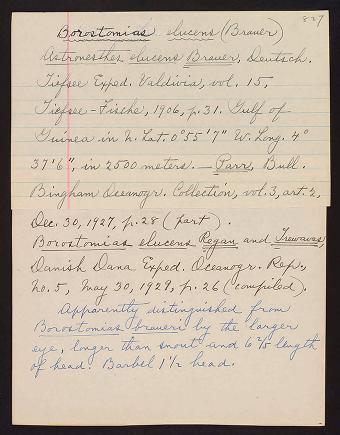 827
Borostomias elucens (Brauer)
Astronesthes elucens Brauer, Deutsch.
Tiefsee Exped. Valdivia, vol. 15,
Tiefsee-Fische, 1906, p. 31. Gulf of
Guinea in N. Lat. 0°55'7" W. Long. 4°
37'6", in 2500 meters. — Parr, Bull.
Bingham Oceanogr. Collection, vol. 3, art. 2,
Dec. 30, 1927, p. 28 (part).
Borostomias elucens Regan and Trewavas,
Danish Dana Exped. Oceanogr. Rep.,
no. 5, May 30, 1929, p. 26 (compiled).
Apparently distinguished from
Borostomias braueri by the larger
eye, longer than snout and length
of head. Barbel 1½ head.